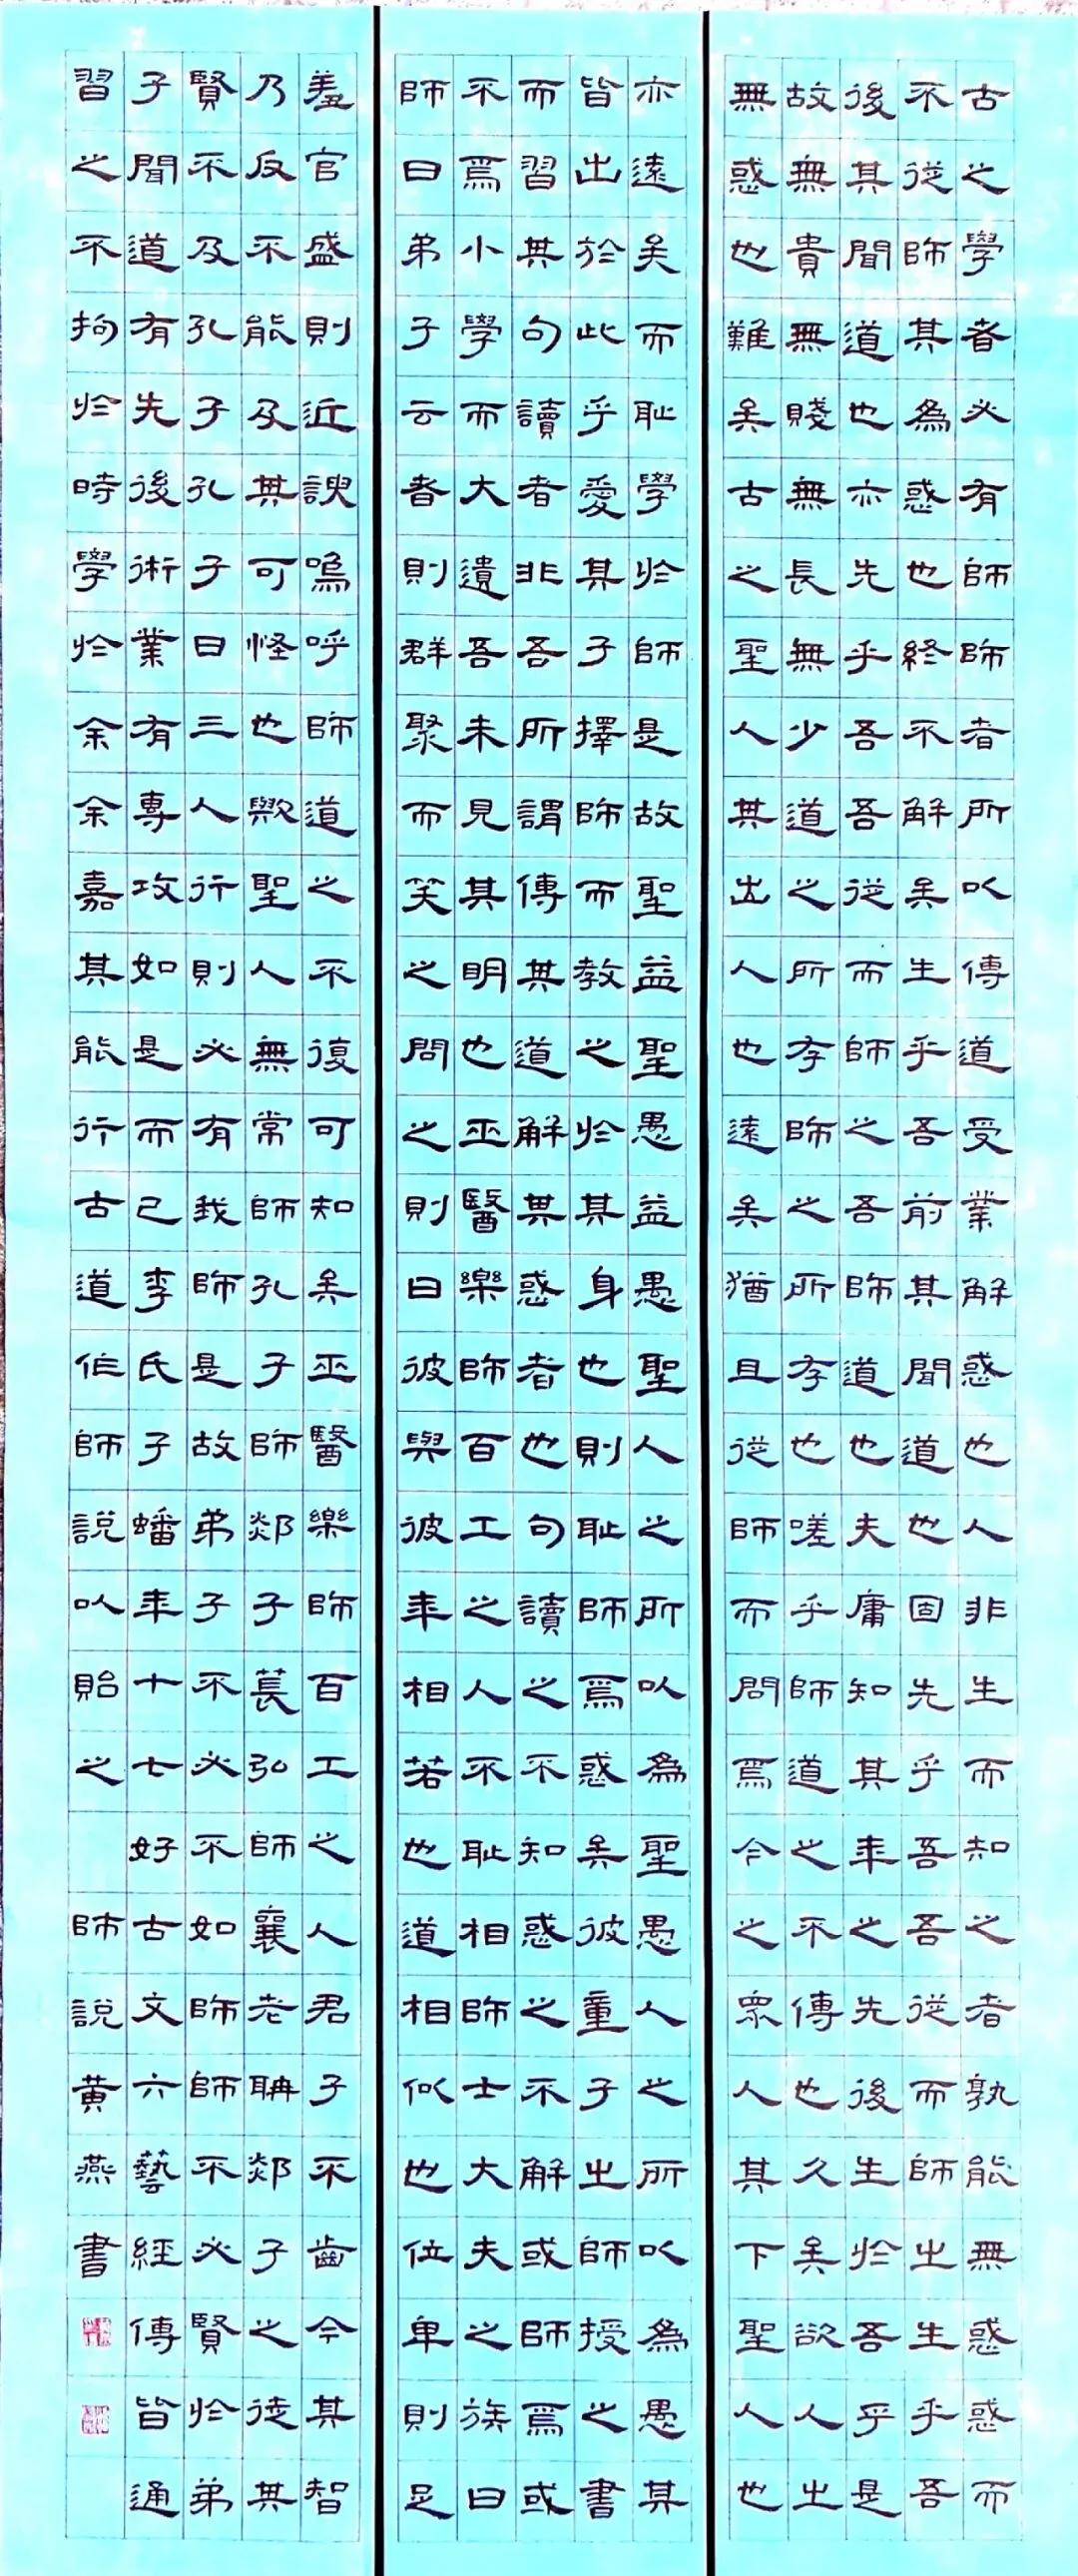 古之學者必有師師者所以傳道受業解惑也人非生而知之者孰能無惑惑而
不從師其為惑也終不解矣生乎吾前其聞道也固先乎吾吾從而師之生乎吾
後其聞道也亦先乎吾吾從而師之吾師道也夫庸知其年之先後生於吾乎是
故無貴無賤無長無少道之所存師之所存也嗟乎師道之不傳也久矣欲人之
無惑也難矣古之聖人其出人也遠矣猶且從師而問焉今之眾人其下聖人也
亦遠矣而耻學於師是故聖益聖愚益愚聖人之所以為聖愚人之所以為愚其
皆出於此乎愛其子擇師而教之於其身也則耻師焉惑矣彼童子之師授之書
而習其句讀者非吾所謂傳其道解其惑者也句讀之不知惑之不解或師焉或
不焉小學而大遺吾未見其明也巫醫樂師百工之人不耻相師士大夫之族曰
師曰弟子云者則群聚而笑之問之則曰彼與彼年相若也道相似也位卑則足
羞官盛則近諛嗚呼師道之不復可知矣巫醫樂師百工之人君子不齒今其智
乃反不能及其可怪也歟聖人無常師孔子師郯子萇弘師襄老聃郯子之徒其
賢不及孔子孔子曰三人行則必有我師是故弟子不必不如師師不必賢於弟
子聞道有先後術業有專攻如是而已李氏子蟠年十七好古文六藝經傳皆通
習之不拘於時學於余余嘉其能行古道作師說以貽之 師說黃燕書